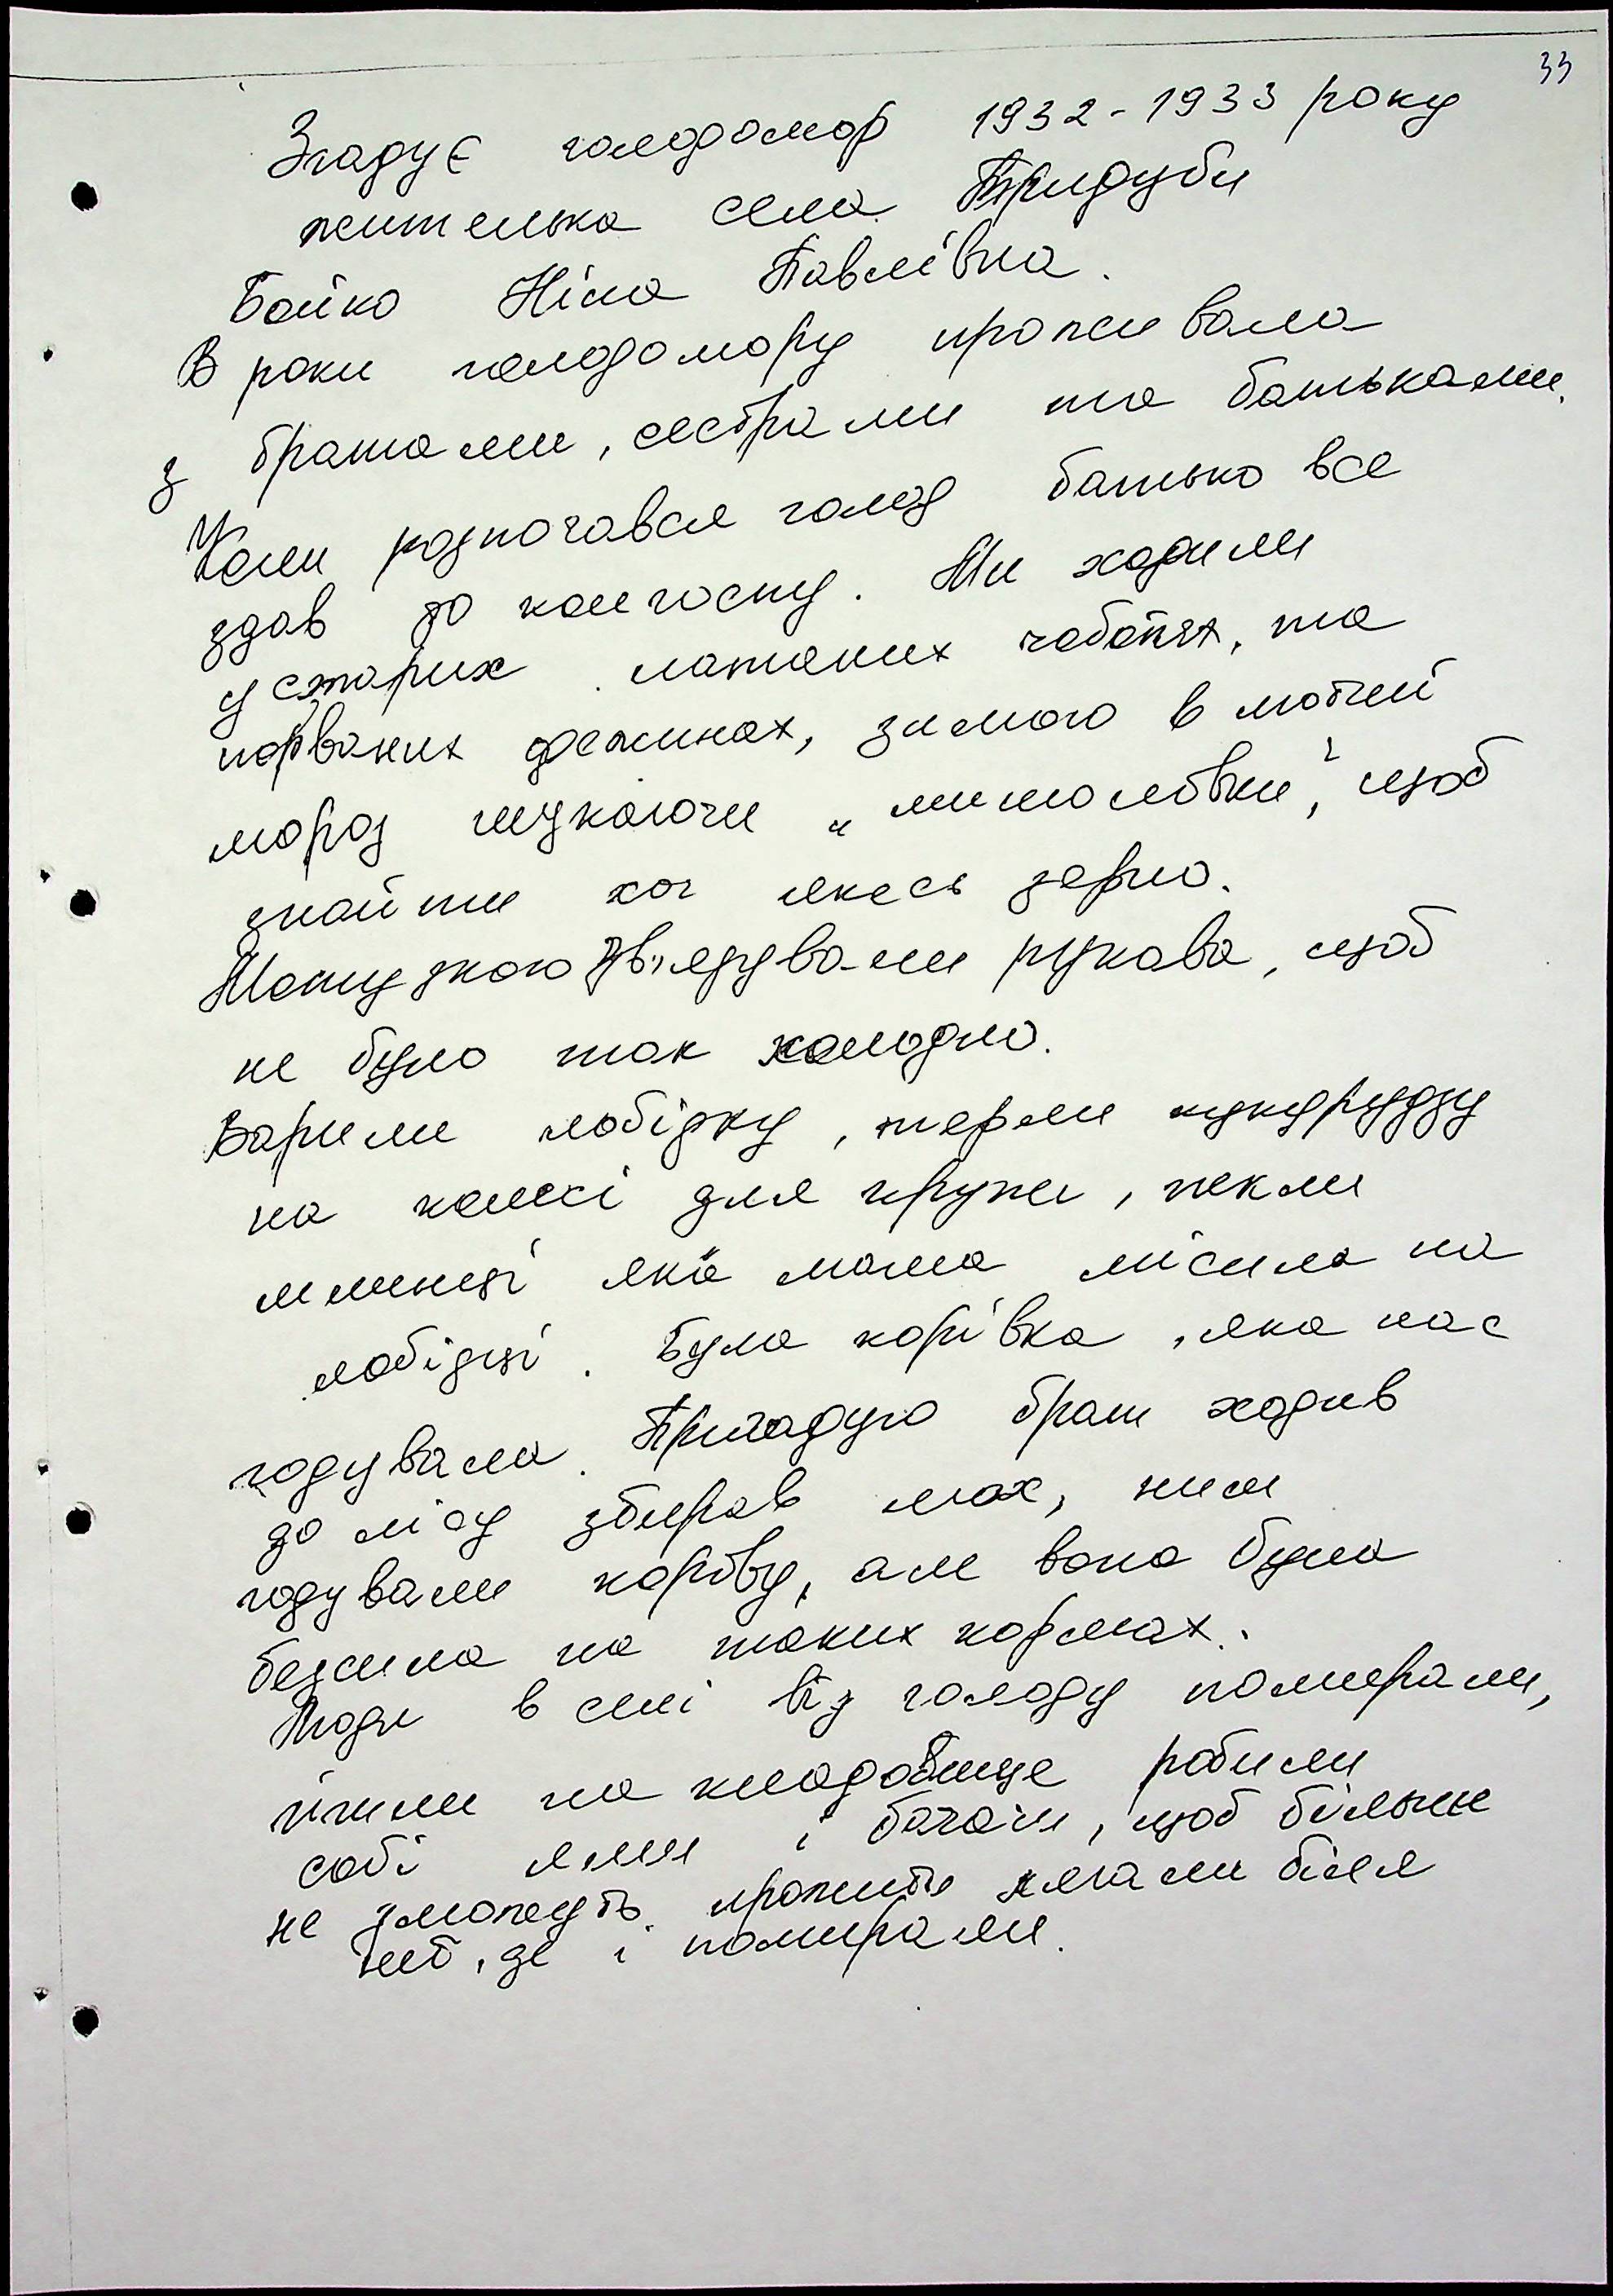 33
Згадує голодомор 1932-1933 року
жителька села Тридуби
Бойко Ніна Павлівна.
В роки голодомору проживала
з братами, сестрами та батьками.
Коли розпочався голод батько все
здав до колгоспу. Ми ходили
у старих латаних чоботях, та
порваних фежинах, зимою в лютий
мороз шукаючи "мишоловки", щоб
знайти хоч якесь зерно.
Мотузкою зв'язували рукава, щоб
не було так холодно.
Варили лобідку, терли кукурудзу
на камсі для крупи, пекли
млинці які мама місила на
лобідці. Була корівка, яка нас
годувала. Пригадую брат ходив
до лісу збирав мох, ним
годували корову, але вона була
безсила на таких кормах.
Люди в селі від голоду помирали,
йшли на кладовище робили
собі ями і бачачи, щоб більше
не зможуть прожити лягали біля
неї, де і помирали.